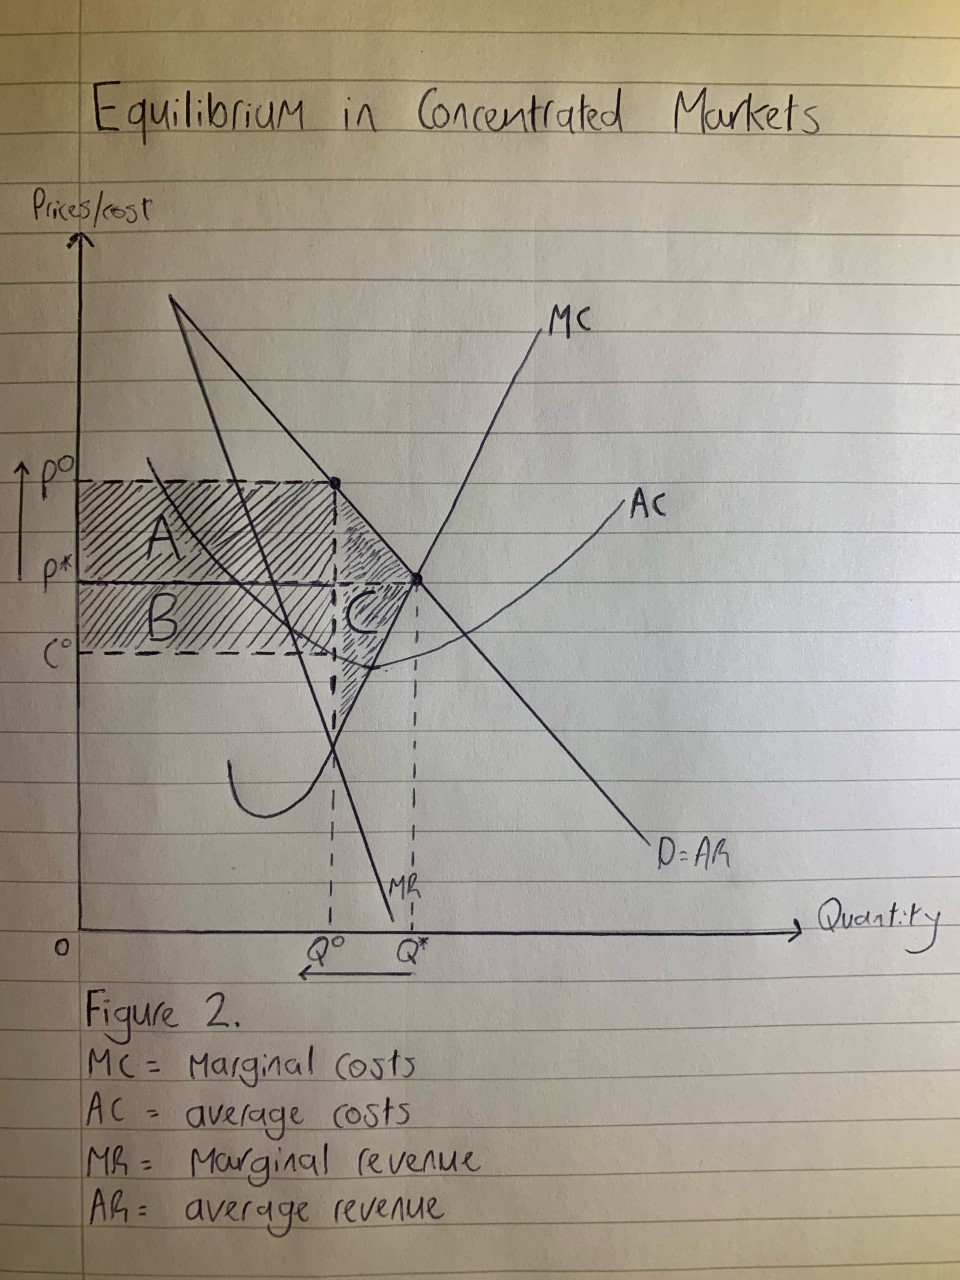 Equilibrium in Concentrated Markets
Prices/cost
MC
P°
AC
A
P*
B
C
C°
D=AR
MR
Quantity
0
Q°
Q*
Figure 2.
MC = Marginal costs
AC = average costs
MR = Marginal revenue
AR = average revenue